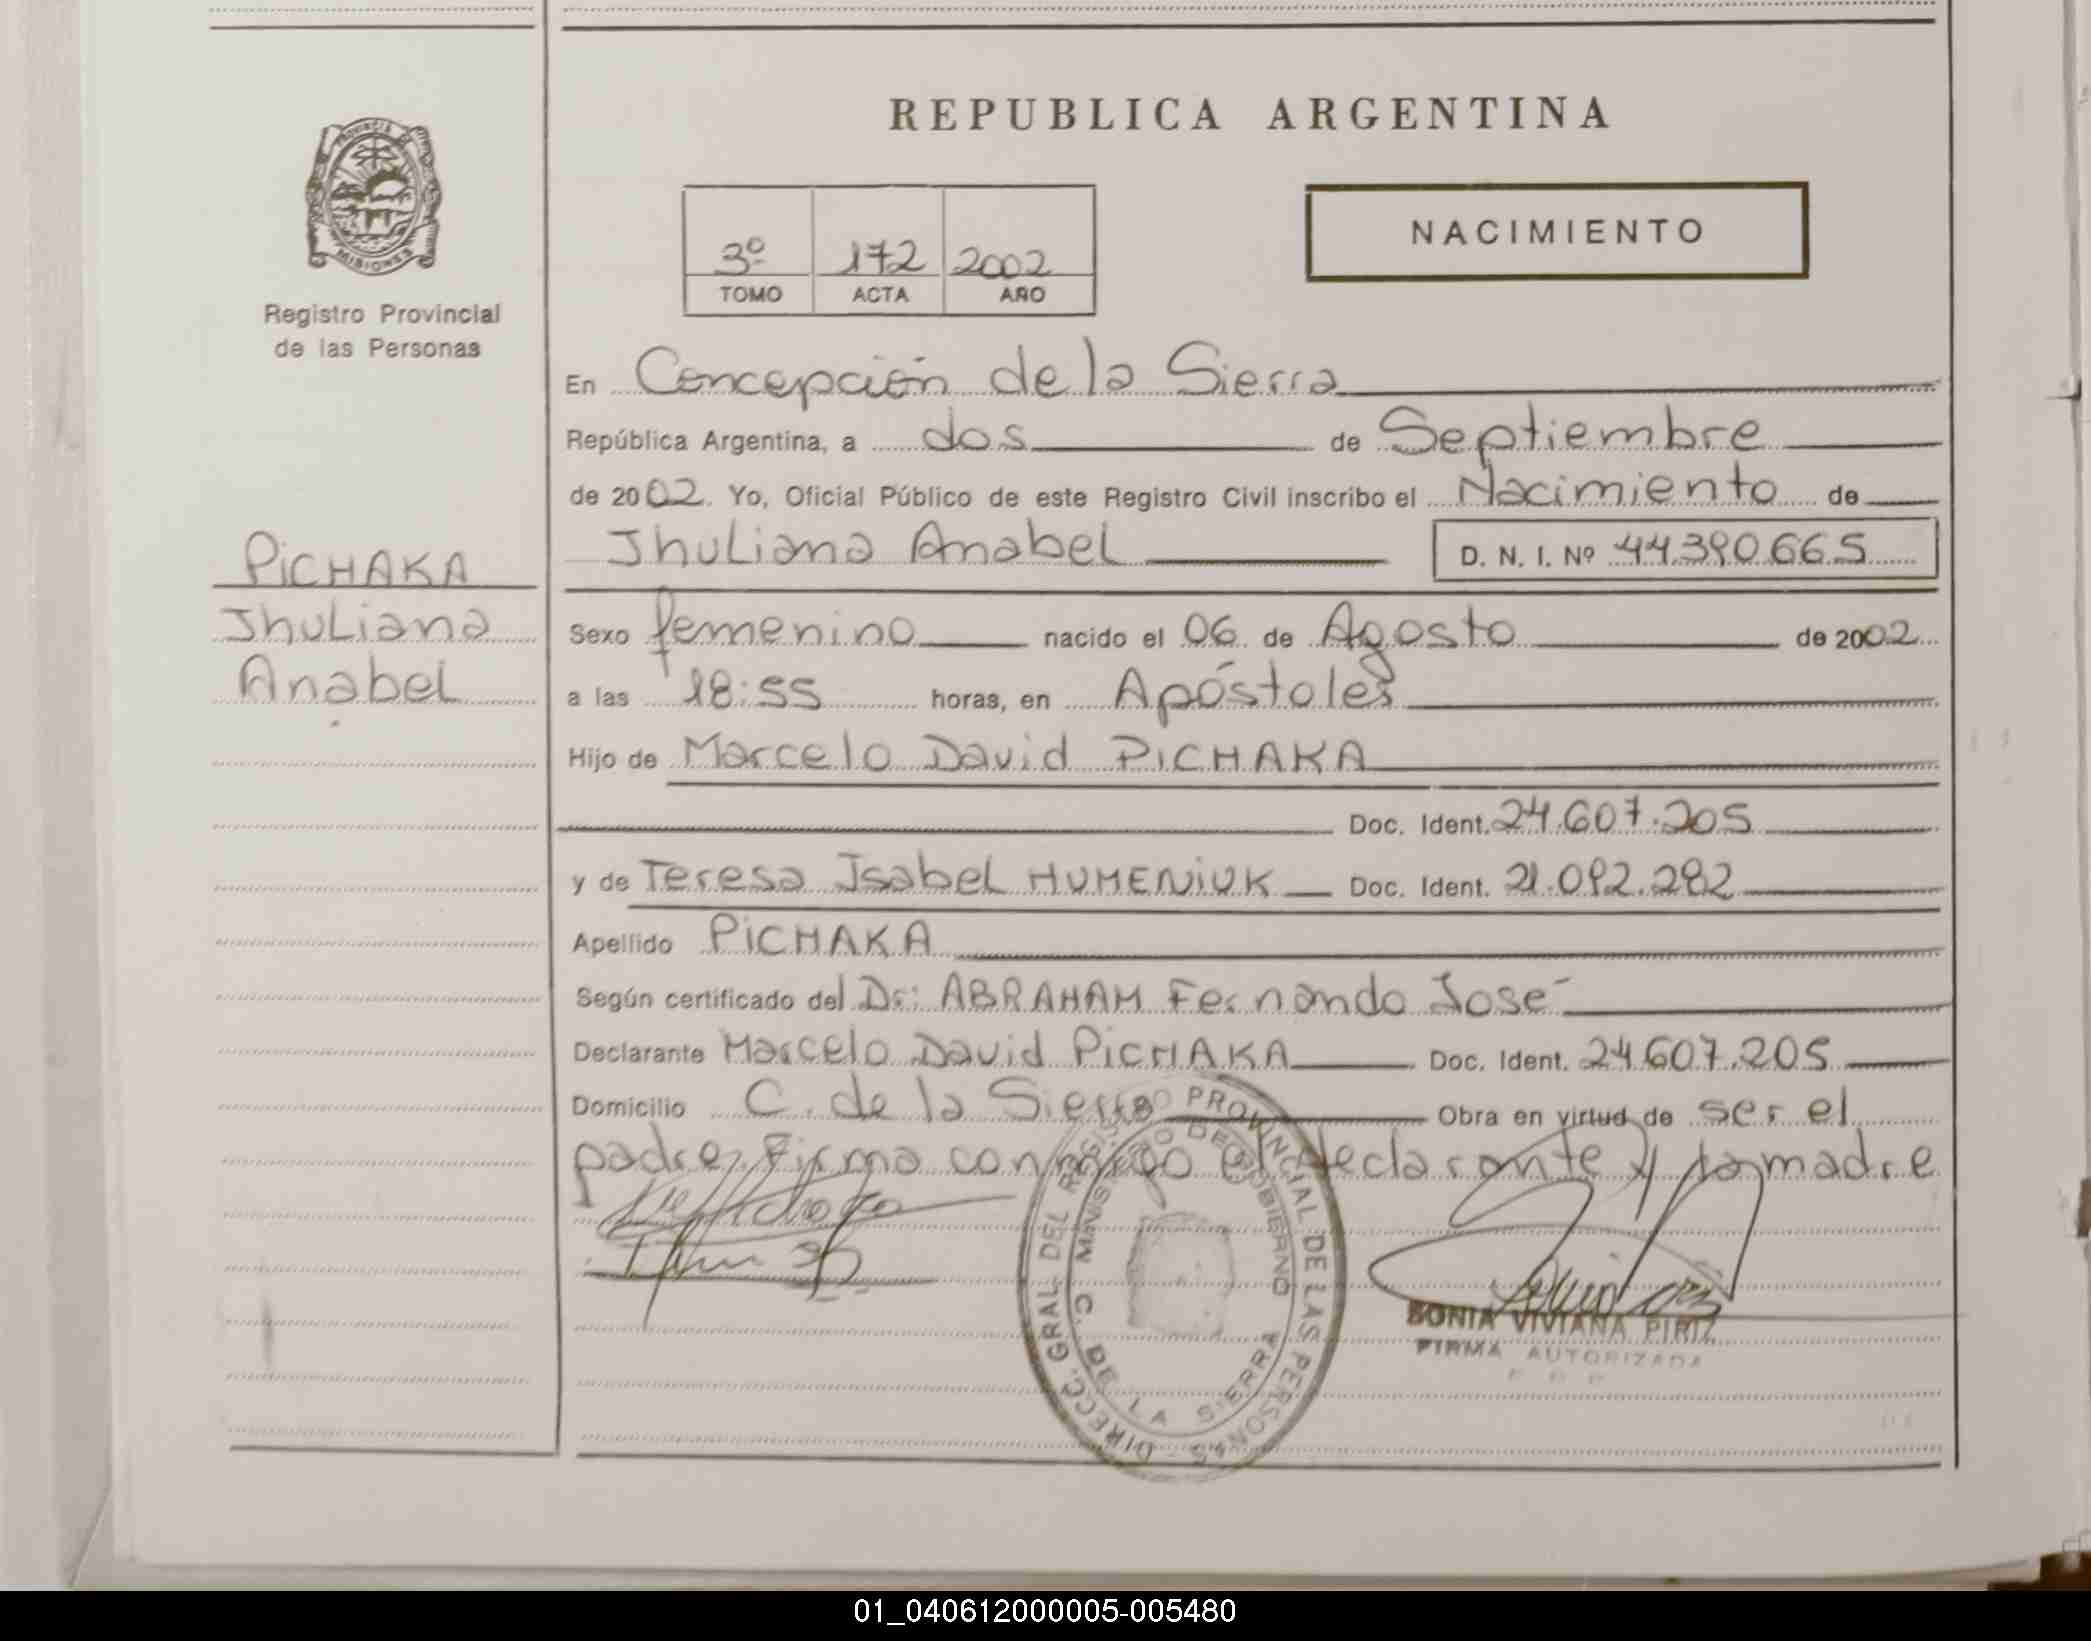 REPUBLICA ARGENTINA
PROVINCIA DE
MISIONES
Registro Provincial
de las Personas
NACIMIENTO
3º 172 2002
TOMO ACTA AÑO
En Concepción de la Sierra
República Argentina, a dos de Septiembre
de 2002. Yo, Oficial Público de este Registro Civil inscribo el Nacimiento de
Jhuliana Anabel D. N. I. Nº 44.390.665
PiCHAKA
Jhuliana
Anabel
Sexo femenino nacido el 06 de Agosto de 2002
a las 18:55 horas, en Apóstoles
Hijo de Marcelo David PiCHAKA
Doc. Ident. 24.607.205
y de Teresa Isabel HUMENiUK Doc. Ident. 21.092.282
Apellido PiCHAKA
Según certificado del Dr: ABRAHAM Fernando José
Declarante Marcelo David PiCHAKA Doc. Ident. 24.607.205
Domicilio C. de la Sierra Obra en virtud de ser el
padre, Firma conmigo el declarante y la madre
DIRECC. GRAL. DEL REGISTRO PROVINCIAL DE LAS PERSONAS
C. DE LA SIERRA
SONIA VIVIANA PIRIZ
FIRMA AUTORIZADA
01_040612000005-005480